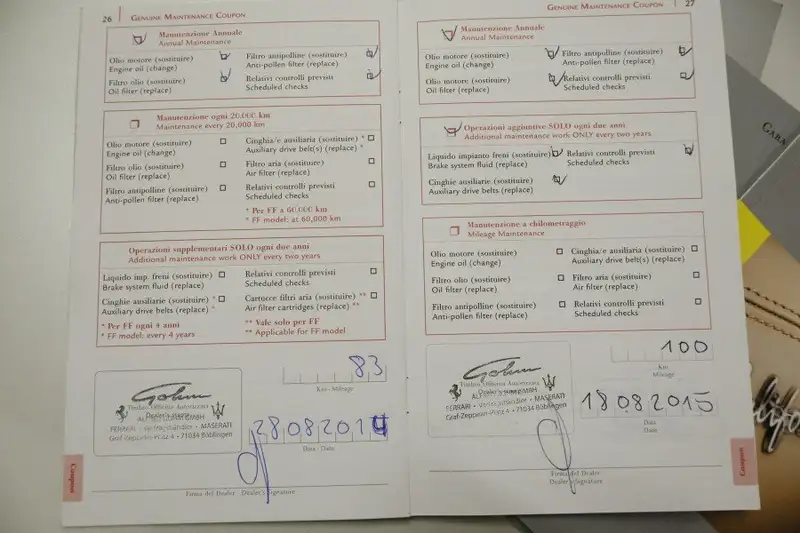 26 GENUINE MAINTENANCE COUPON
Manutenzione Annuale
Annual Maintenance
Olio motore (sostituire)
Engine oil (change)
Filtro antipolline (sostituire)
Anti-pollen filter (replace)
Filtro olio (sostituire)
Oil filter (replace)
Relativi controlli previsti
Scheduled checks
Manutenzione ogni 20.000 km
Maintenance every 20,000 km
Olio motore (sostituire)
Engine oil (change)
Cinghia/e auxiliaria (sostituire) *
Auxiliary drive belt(s) (replace) *
Filtro olio (sostituire)
Oil filter (replace)
Filtro aria (sostituire)
Air filter (replace)
Filtro antipolline (sostituire)
Anti-pollen filter (replace)
Relativi controlli previsti
Scheduled checks
* Per FF a 60.000 km
* FF model: at 60,000 km
Operazioni supplementari SOLO ogni due anni
Additional maintenance work ONLY every two years
Liquido imp. freni (sostituire)
Brake system fluid (replace)
Relativi controlli previsti
Scheduled checks
Cinghie ausiliarie (sostituire) *
Auxiliary drive belts (replace) *
Cartucce filtri aria (sostituire) **
Air filter cartridges (replace) **
* Per FF ogni 4 anni
* FF model: every 4 years
** Vale solo per FF
** Applicable for FF model
83
Km - Mileage
Gohm
Timbro Officina Autorizzata
Dealer's stamp
FERRARI - Vertragshändler - MASERATI
Graf-Zeppelin-Platz 4 • 71034 Böblingen
28082014
Data - Date
Firma del Dealer - Dealer's signature
Coupons
GENUINE MAINTENANCE COUPON 27
Manutenzione Annuale
Annual Maintenance
Olio motore (sostituire)
Engine oil (change)
Filtro antipolline (sostituire)
Anti-pollen filter (replace)
Olio motore (sostituire)
Oil filter (replace)
Relativi controlli previsti
Scheduled checks
Operazioni aggiuntive SOLO ogni due anni
Additional maintenance work ONLY every two years
Liquido impianto freni (sostituire)
Brake system fluid (replace)
Relativi controlli previsti
Scheduled checks
Cinghie ausiliarie (sostituire)
Auxiliary drive belts (replace)
Manutenzione a chilometraggio
Mileage Maintenance
Olio motore (sostituire)
Engine oil (change)
Cinghia/e ausiliaria (sostituire)
Auxiliary drive belt(s) (replace)
Filtro olio (sostituire)
Oil filter (replace)
Filtro aria (sostituire)
Air filter (replace)
Filtro antipolline (sostituire)
Anti-pollen filter (replace)
Relativi controlli previsti
Scheduled checks
100
Km
Mileage
Gohm
Timbro Officina Autorizzata
Dealer's stamp
FERRARI - Vertragshändler - MASERATI
Graf-Zeppelin-Platz 4 • 71034 Böblingen
18082015
Data
Date
Firma del Dealer
Dealer's signature
Coupons